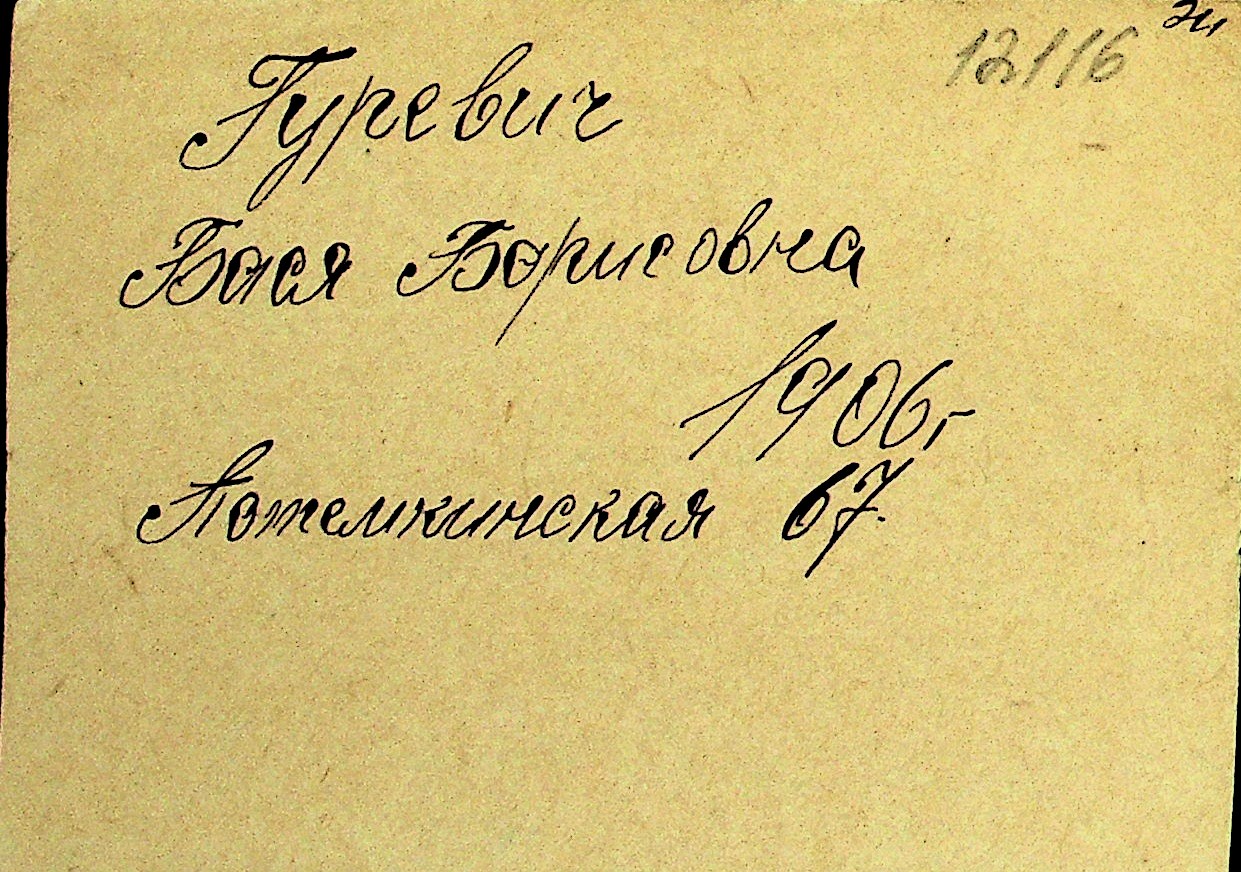 эи
12116
Гуревич
Бася Борисовна
1906 г
Потемкинская 67.